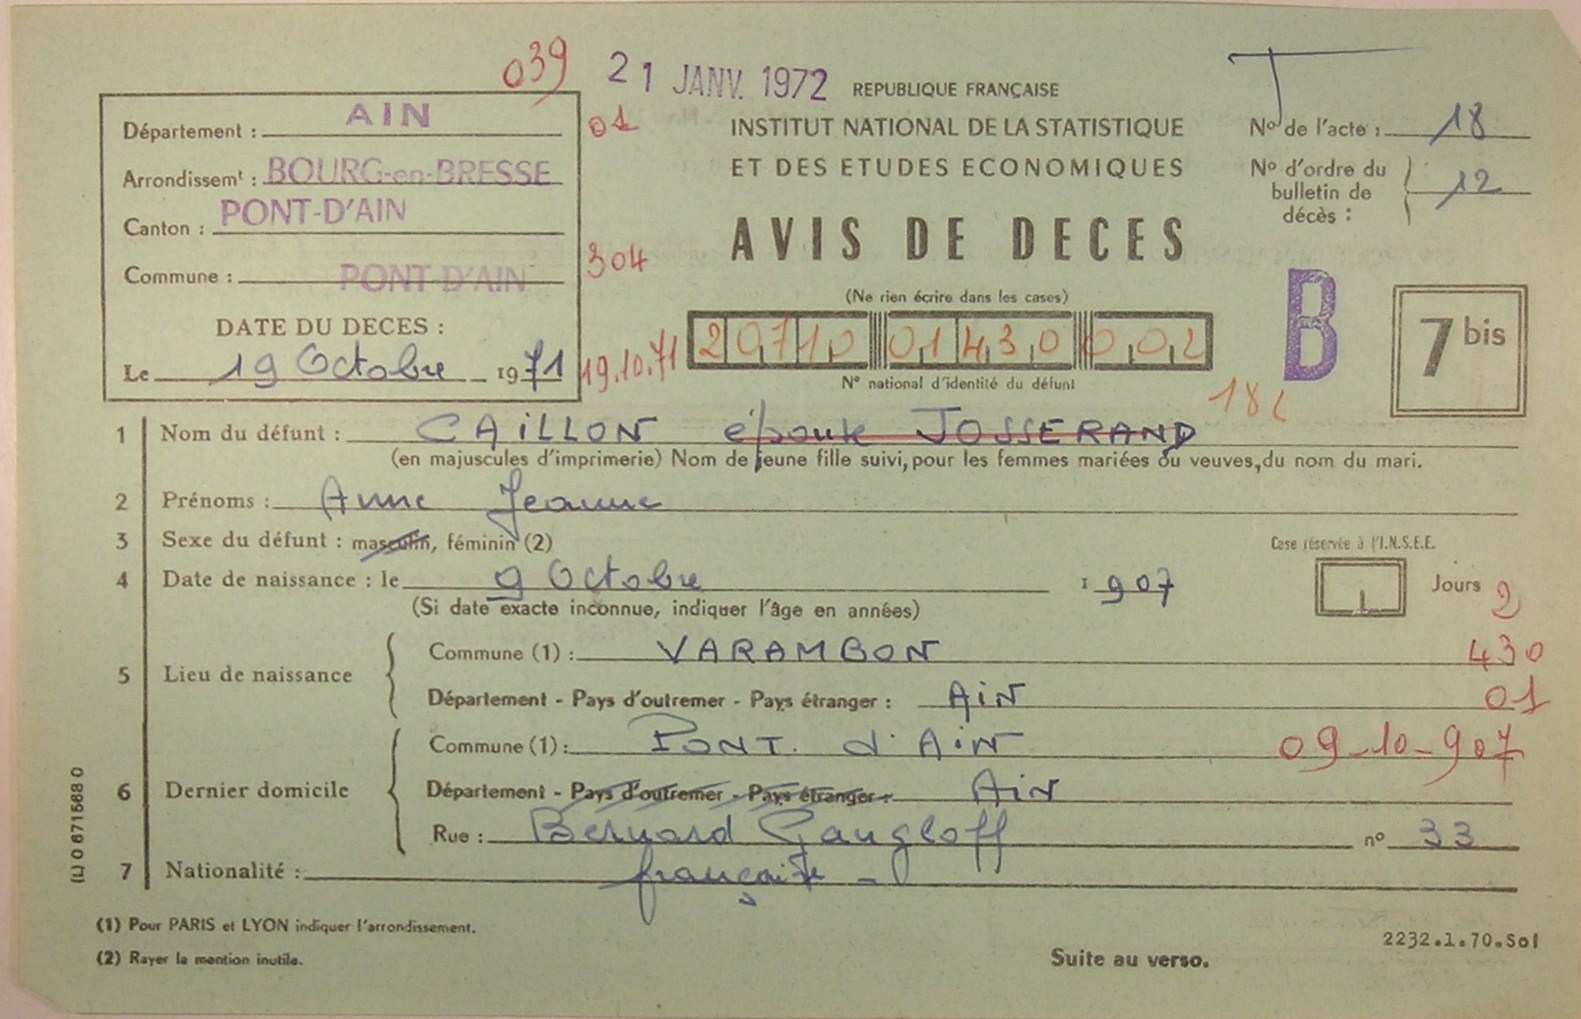 039 21 JANV. 1972 REPUBLIQUE FRANÇAISE
Département : AIN 01
INSTITUT NATIONAL DE LA STATISTIQUE
ET DES ETUDES ECONOMIQUES
Nº de l'acte : 18
Arrondissemt : BOURG-en-BRESSE
Nº d'ordre du bulletin de décès : 12
Canton : PONT-D'AIN
AVIS DE DECES
Commune : PONT-D'AIN 304
(Ne rien écrire dans les cases)
B
7 bis
DATE DU DECES :
Le 19 Octobre 1971 19.10.71
20710 01430 002
Nº national d'identité du défunt
18
1 Nom du défunt : CAILLON épouse JOSSERAND
(en majuscules d'imprimerie) Nom de jeune fille suivi, pour les femmes mariées ou veuves, du nom du mari.
2 Prénoms : Anne Jeanne
3 Sexe du défunt : masculin, féminin (2)
Case réservée à l'I.N.S.E.E.
4 Date de naissance : le 9 Octobre 1907
Jours 2
(Si date exacte inconnue, indiquer l'âge en années)
5 Lieu de naissance
Commune (1) : VARAMBON 430
Département - Pays d'outremer - Pays étranger : AiN 01
6 Dernier domicile
Commune (1) : PONT. d'AiN 09-10-907
Département - Pays d'outremer - Pays étranger : AiN
Rue : Bernard Gangloff nº 33
7 Nationalité : française -
(L) 0 671568 0
(1) Pour PARIS et LYON indiquer l'arrondissement.
(2) Rayer la mention inutile.
2232.1.70.Sol
Suite au verso.